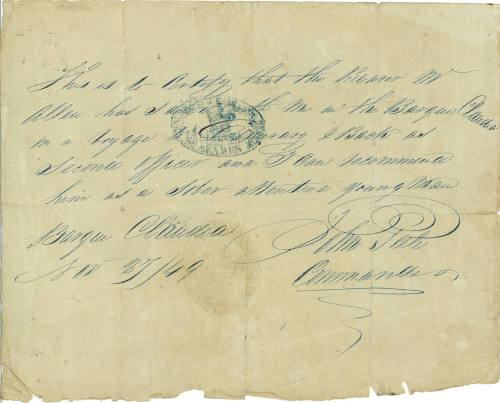 This is to Certify that the Bearer Mr
Allen has with me in the Barque Claudia
on a voyage & Back as
Second officer and I can recommend
him as a Sober attentive young Man
Barque Claudia John
Nov 27/49 Commander